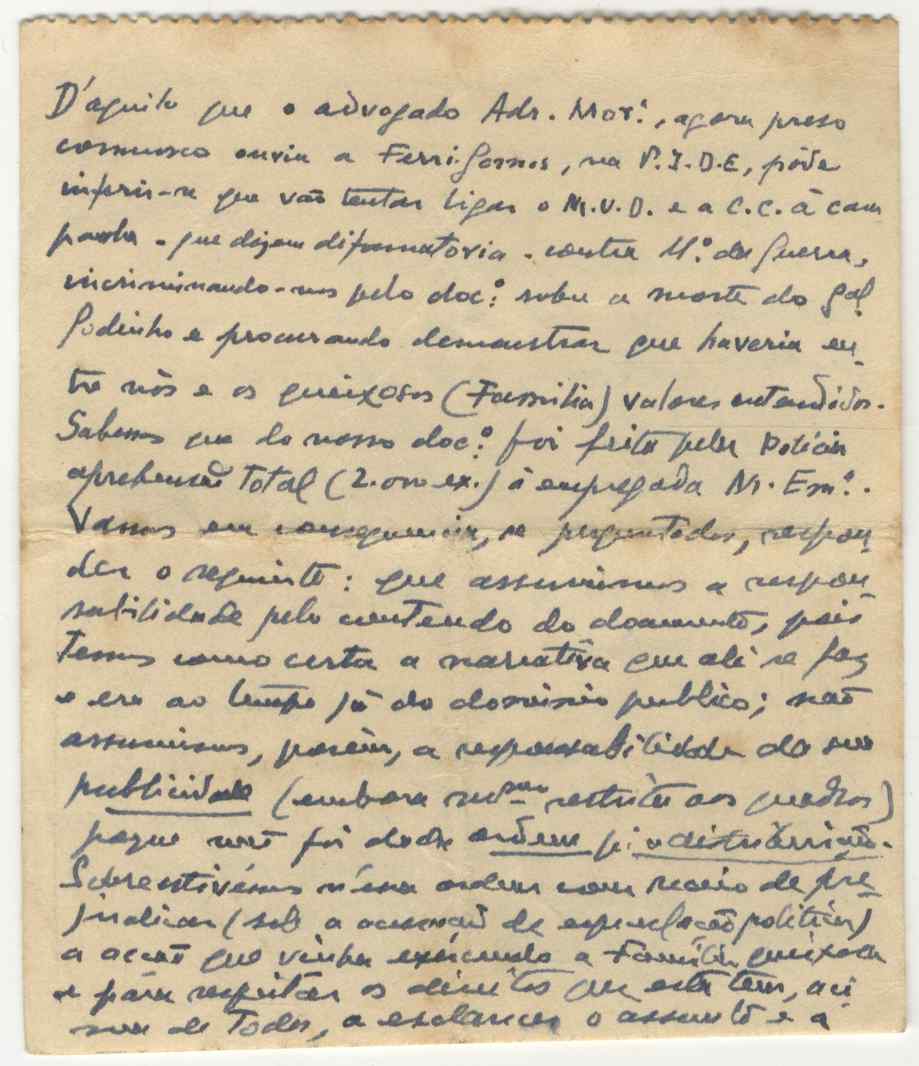 D'aquilo que o advogado Adr. Mor.ª, agora preso
comnosco ouviu a Ferri. Gomes, na P.I.D.E, póde
inferir-se que vão tentar ligar o M.U.D. e a C.C. à cam
panha - que dizem difamatoria - contra M.º da Guerra,
incriminando-nos pelo doc.º sobre a morte do Gal
Godinho e procurando demonstrar que haveria en-
tre nós e os queixosos (Familia) valores entendidos.
Sabemos que do nosso doc.º foi feita pela Policia
aprehensão total (2.000 ex.) á empregada M. Em.ª.
Vamos em consequencia, se perguntados, respon-
der o seguinte: que assumimos a respon-
sabilidade pelo conteudo do documento, pois
temos como certa a narrativa que ali se faz
e era ao tempo já do dominio publico; não
assumimos, porém, a responsabilidade da sua
publicidade (embora restrita aos quadros)
porque não foi dada ordem p.ª a distribuição.
Sobrestivémos n'essa ordem com receio de pre-
judicar (sob a acusação de especulação politica)
a acção que vinha exercendo a Familia queixosa
e pára respeitar os direitos que esta tem, aci
ma de todos, a esclarecer o assunto e á